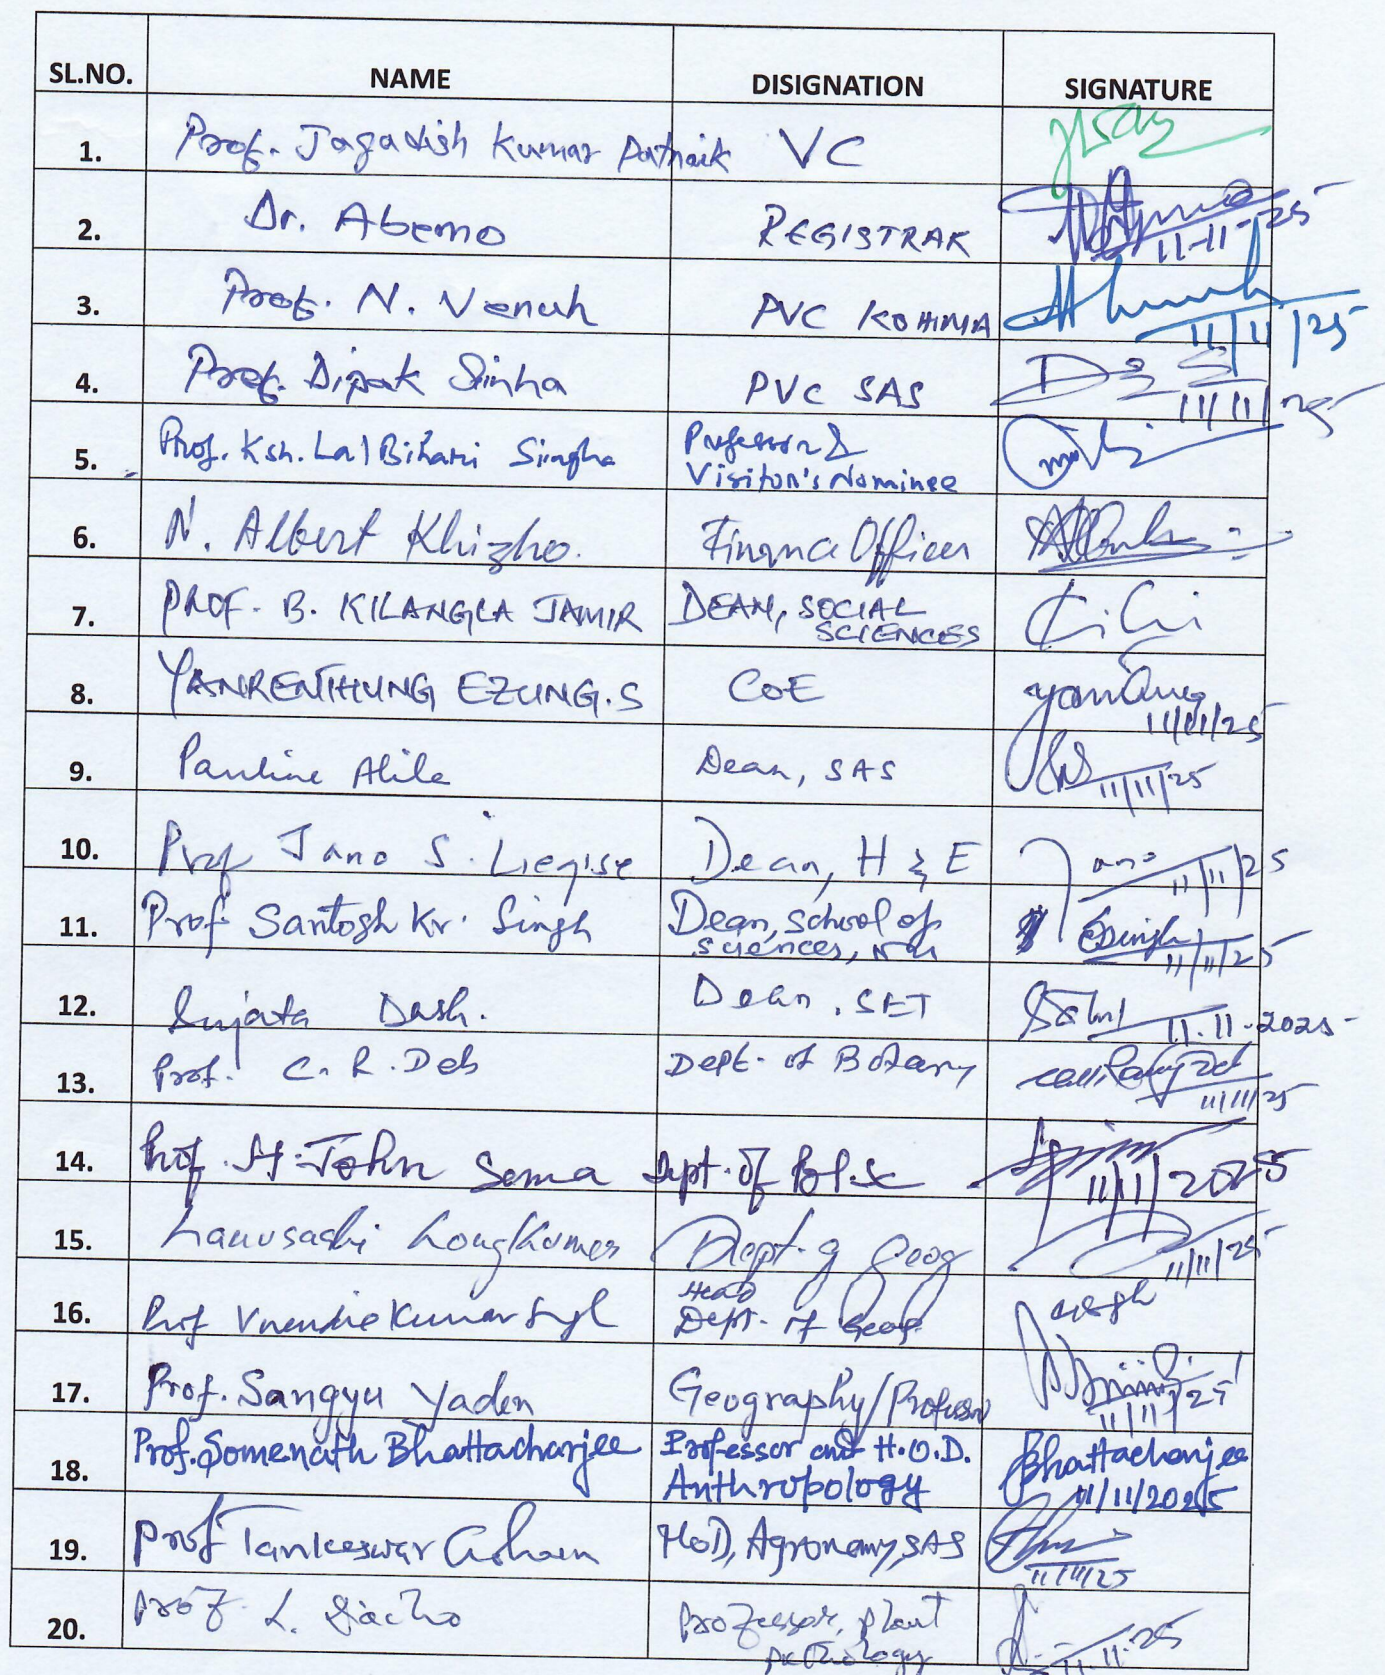 SL.NO. NAME DISIGNATION SIGNATURE
1. Prof. Jagadish Kumar Patnaik VC
2. Dr. Abemo REGISTRAR 11-11-25
3. Prof. N. Venuh PVC KOHIMA 11/11/25
4. Prof. Dipak Sinha PVC SAS 11/11/25
5. Prof. Ksh. Lal Bihari Singha Professor &
Visitor's Nominee
6. N. Albert Khizho. Finance Officer
7. PROF. B. KILANGLA JAMIR DEAN, SOCIAL
SCIENCES
8. YANRENTHUNG EZUNG.S COE 11/11/25
9. Pauline Alila Dean, SAS 11/11/25
10. Prof Jano S. Liegise Dean, H & E Jano 11/11/25
11. Prof Santosh Kr. Singh Dean, School of
Sciences, NU 11/11/25
12. Sujata Dash. Dean, SET 11.11.2025
13. Prof. C. R. Deb Dept. of Botany 11/11/25
14. Prof. H. John Sema Dept. of Pol. Sc 11/11/2025
15. Lanusashi Longkumer Dept. of Geog 11/11/25
16. Prof Kumar Head
Dept. of Geog.
17. Prof. Sangyu Yaden Geography/Professor 11/11/25
18. Prof. Somenath Bhattacharjee Professor and H.O.D. Bhattacharjee
Anthropology 11/11/2025
19. Prof Tankeswar HoD, Agronomy, SAS 11/11/25
20. Prof. L. Professor, Plant
Pathology 11.11.25